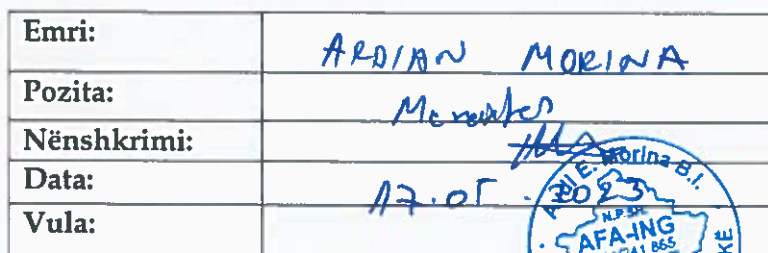 Emri: ARDIAN MORINA
Pozita: Menaxher
Nënshkrimi:
Data: 17.05.2023
Vula:
E. Morina B.I.
N.P.SH.
AFA-ING